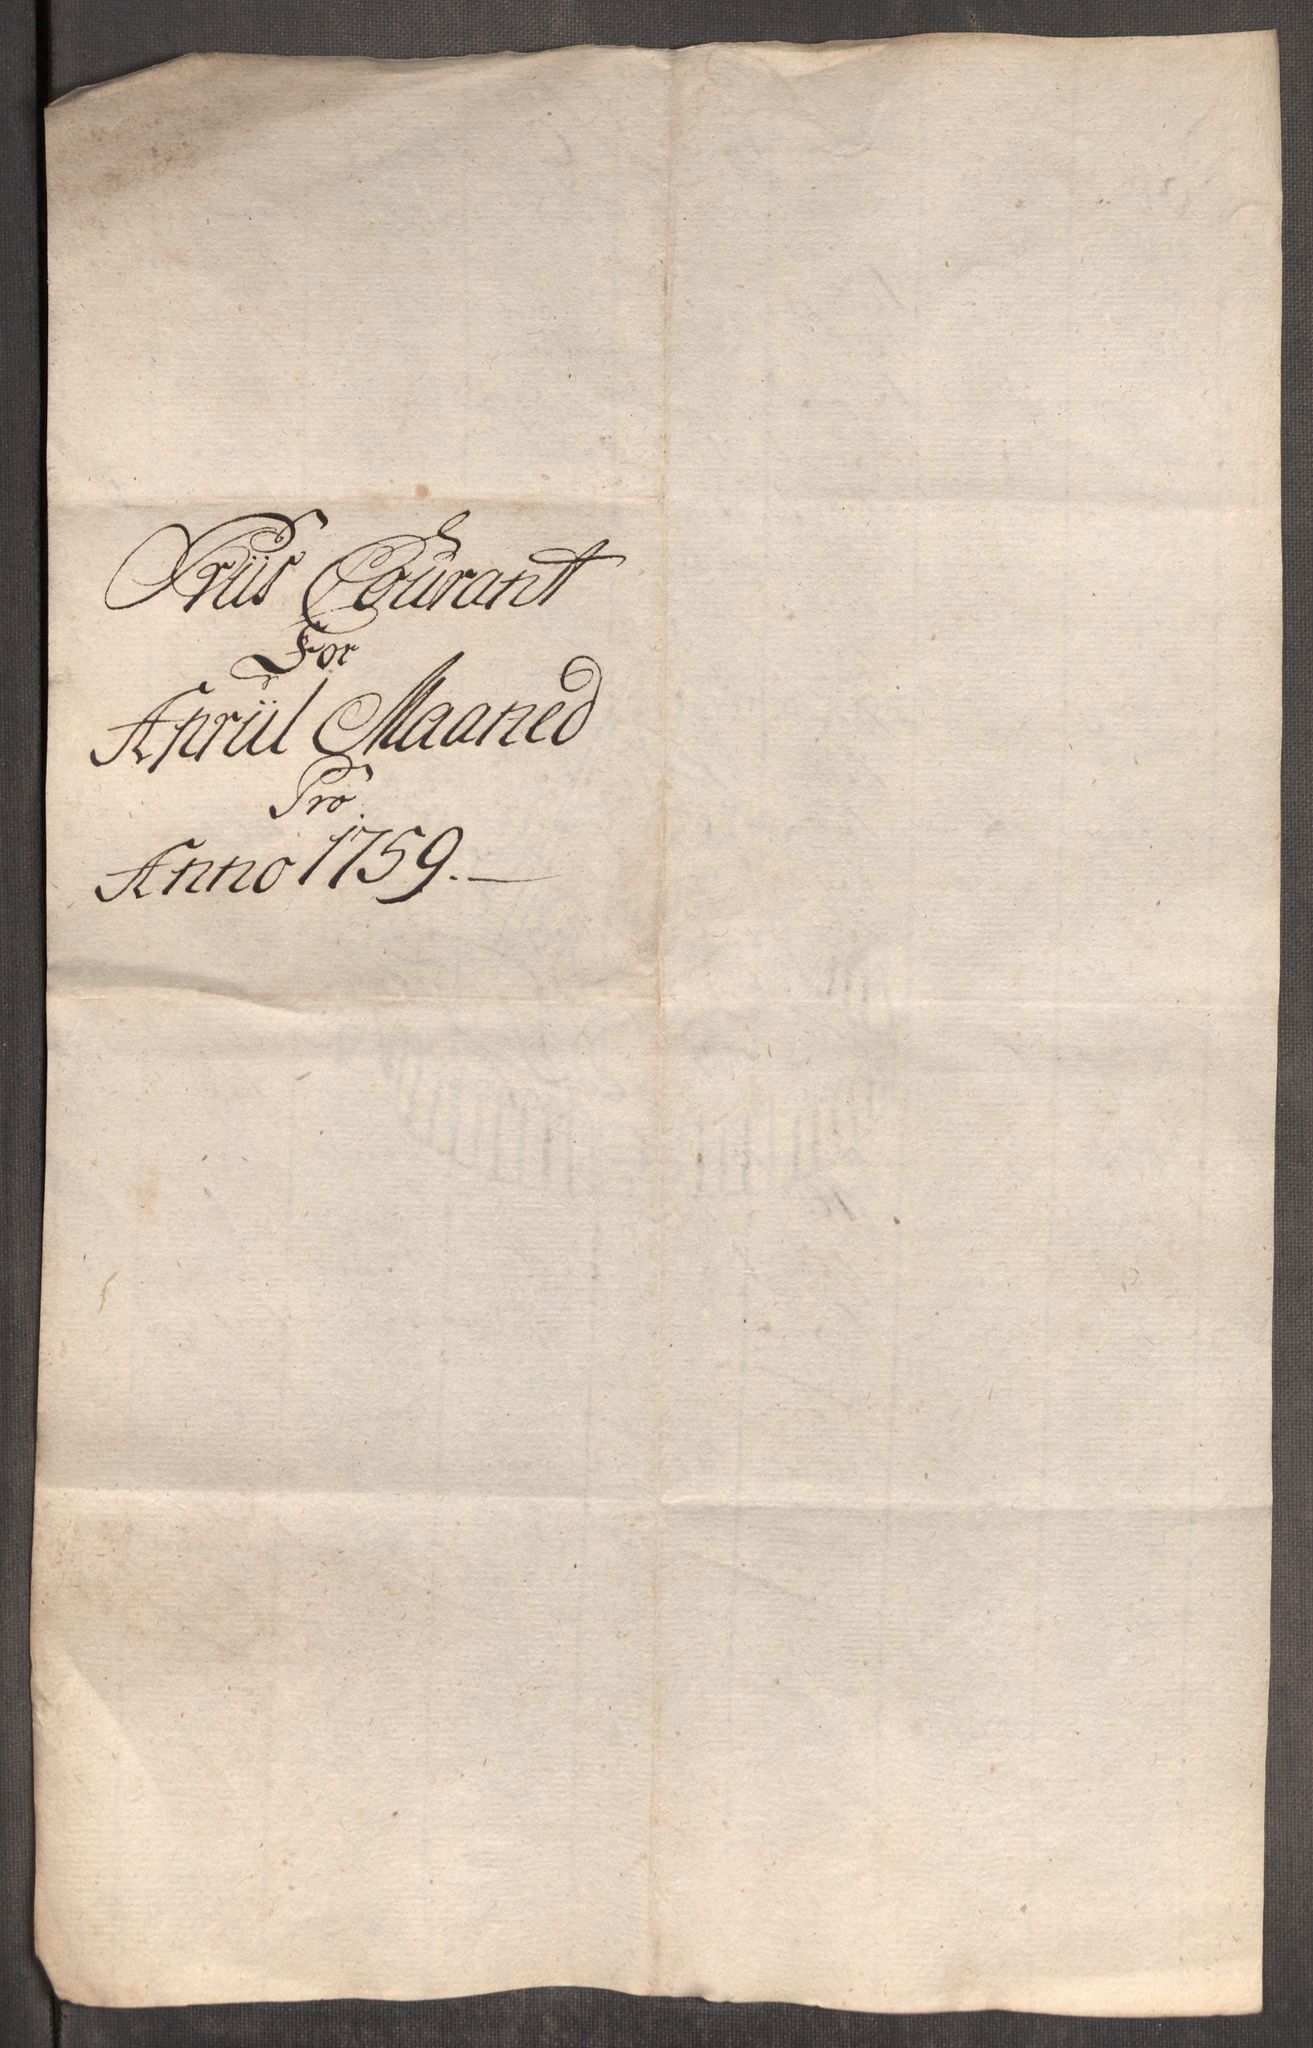 Priis Courant
For
Apriil Maaned
Pro
Anno 1759.